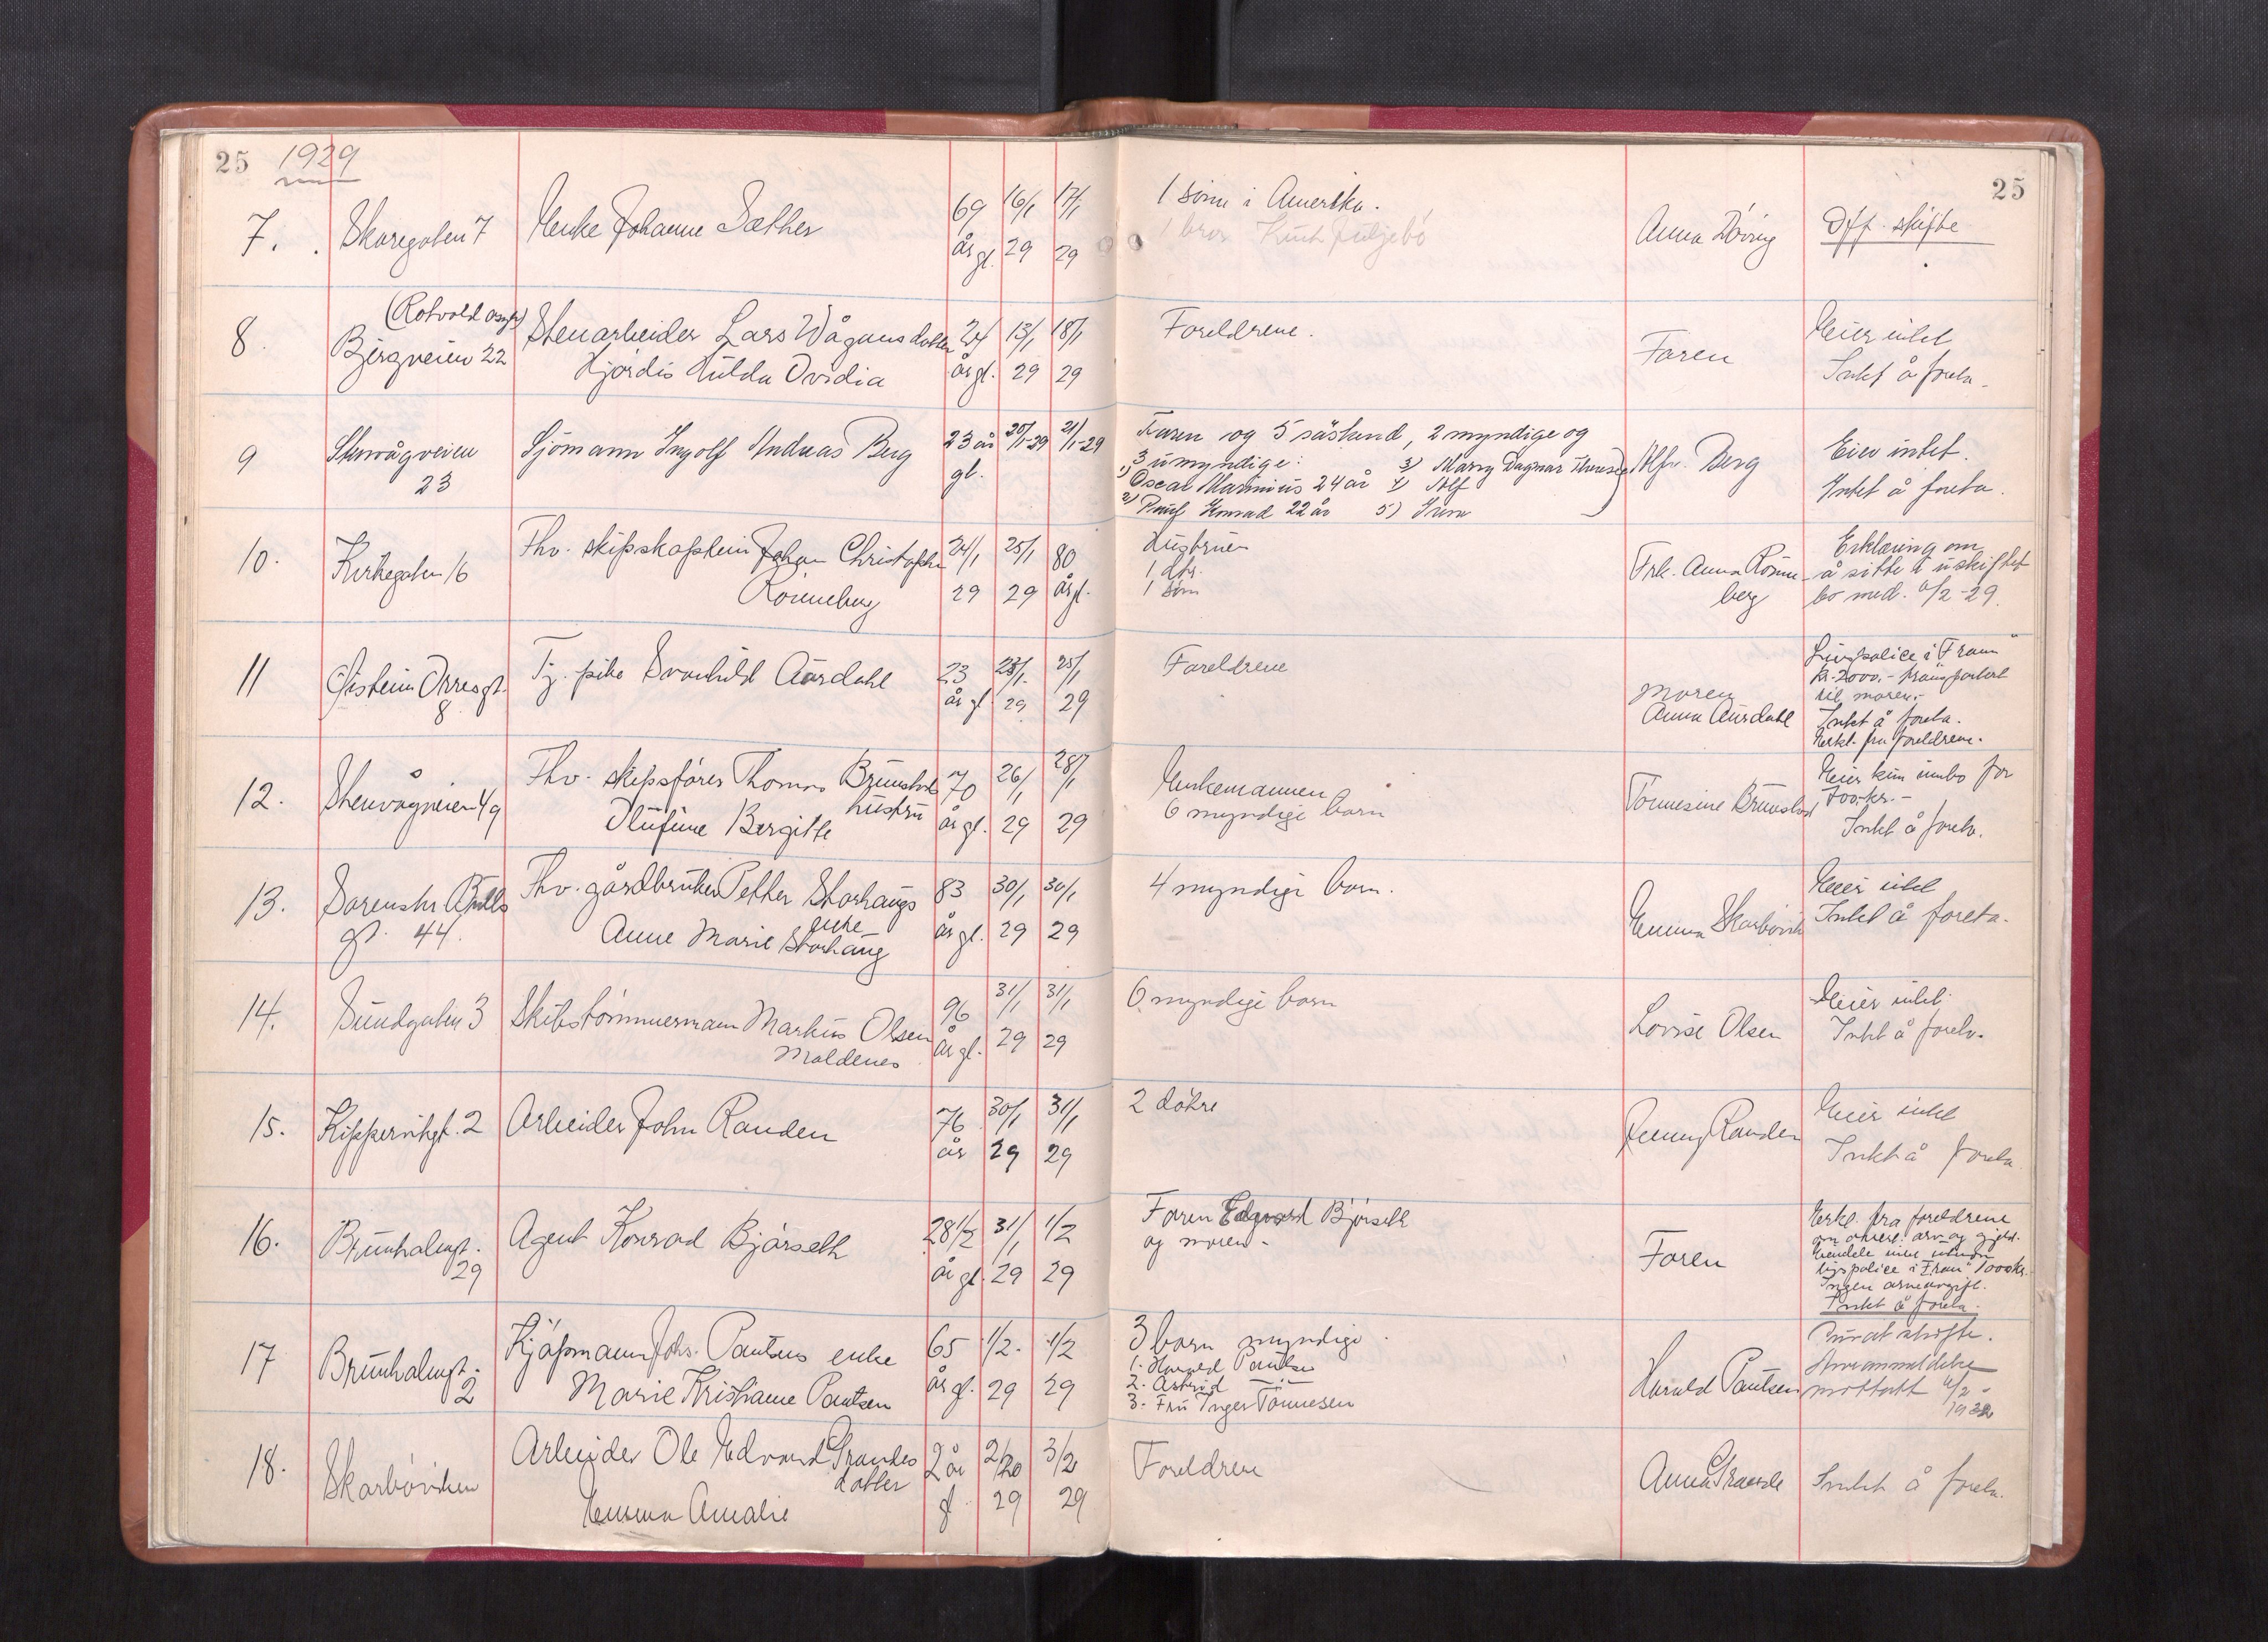 25 1929
25
7. Skaregaten 7 Enke Johanne Sæther 69 år gl. 16/1 29 17/1 29
1 sönn i Amerika.
1 bror
Anna Döving
Off. skifte
8. (Rotvold asyl)
Bjergveien 22
Stenarbeider Lars Vågans datter
Hjördis Hulda Ovidia
24 år gl. 13/1 29 18/1 29
Foreldrene.
Faren
Eier intet
Intet å foreta.
9 Stenvågveien
23
Sjömann Ingolf Andreas Berg
23 år gl. 20/1-29 21/1-29
Faren og 5 söskend, 2 myndige og
3 umyndige:
1) Oscar Marinius 24 år
2) Konrad 22 år
3) Marry Dagmar Therese
4) Alf
5)
Alfr. Berg
Eier intet.
Intet å foreta.
10. Kirkegaten 16
Fhv. skipskaptein Johan Christopher
Rönneberg
24/1 29 25/1 29 80 år gl.
Hustruen
1 dtr.
1 sönn
Frk. Anna Rönne-
berg
Erklæring om
å sitte i uskiftet
bo med. 6/2-29.
11 Öistein Orresgt.
8
Tj. pike Svanhild Aursdahl
23 år gl. 23/1. 29 25/1 29
Foreldrene
Moren
Anna Aursdahl
Livspolice i "Fram"
kr. 2000.- transportert
til moren.-
Intet å foreta.
Erkl. fra foreldrene.
12. Stenvågveien 49
Fhv. skipsförer Thomas Brunstad
hustru
Olufine Bergitte
70 år gl. 26/1 29 28/1 29
Enkemannen
6 myndige barn
Tönnesine Brunstad
Eier kun innbo for
700 kr.-
Intet å foreta.
13. Sorenskr. Bulls
gt. 44.
Fhv. gårdbruker Petter Storhaugs
enke
Anne Marie Storhaug
83 år gl. 30/1 29 30/1 29
4 myndige barn.
Emma Skarbövik
Eier intet
Intet å foreta.
14. Sundgaten 3
Skibstömmermann Markus Olsen
Moldenes
96 år gl. 31/1 29 31/1 29
6 myndige barn
Lovise Olsen
Eier intet.
Intet å foreta.
15. Kippervikgt. 2
Arbeider John Randen
76 år 30/1 29 31/1 29
2 dötre
Jenny Randen
Eier intet
Intet å foreta
16. Brunholmgt.
29
Agent Konrad Bjørseth
28 1/2 år gl. 31/1 29 1/2 29
Faren Edvard Bjørseth
og moren.
Faren
Erkl. fra foreldrene
om overt. arv og gjeld.
livspolice i "Fram" 1000 kr.
Ingen arveavgift.
Intet å foreta.
17 Brunholmgt.
2
Kjöpmann Johs. Pautsens enke
Marie Kristianne Pautsen
65 år gl. 1/2. 29 1/2 29
3 barn myndige.
1. Harald Pautsen
2. Astrid —"—
3. Fru Inger Tönnesen
Harald Pautsen
Privat skifte.
Arveanmeldelse
mottatt 4/2 -
1932
18. Skarböviken
Arbeider Ole Edvard Grandes
datter
Emma Amalie
2 år gl. 2/2 29 3/2 29
Foreldrene
Anna Grande
Intet å foreta.